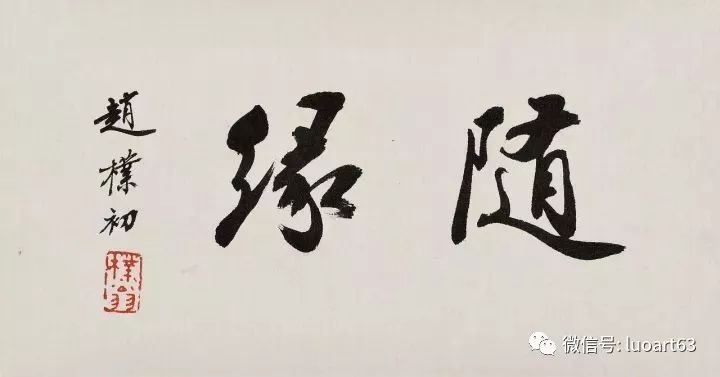 随缘
趙樸初
樸翁
微信号: luoart63